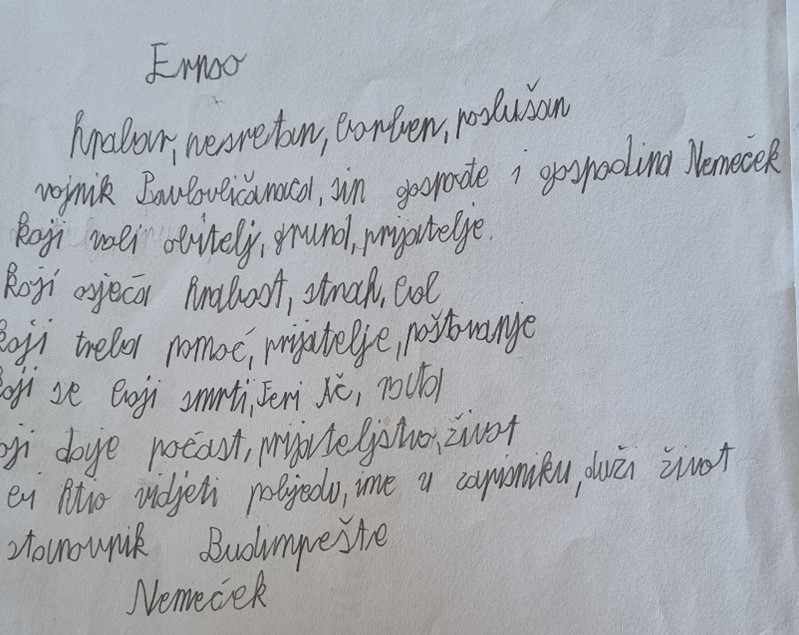 Ernoo
hrabar, nesretan, borben, poslušan
vojnik Pavlovličanaca, sin gospođe i gospodina Nemeček
koji voli obitelj, grund, prijatelje.
koji osjeća hrabost, strah, bol
koji treba pomoć, prijatelje, poštovanje
koji se boji smrti, Feri Ač, rata
oji daje počast, prijateljstvo, život
bi htio vidjeti pobjedu, ime u zapisniku, duži život
stanovnik Budimpešte
Nemećek